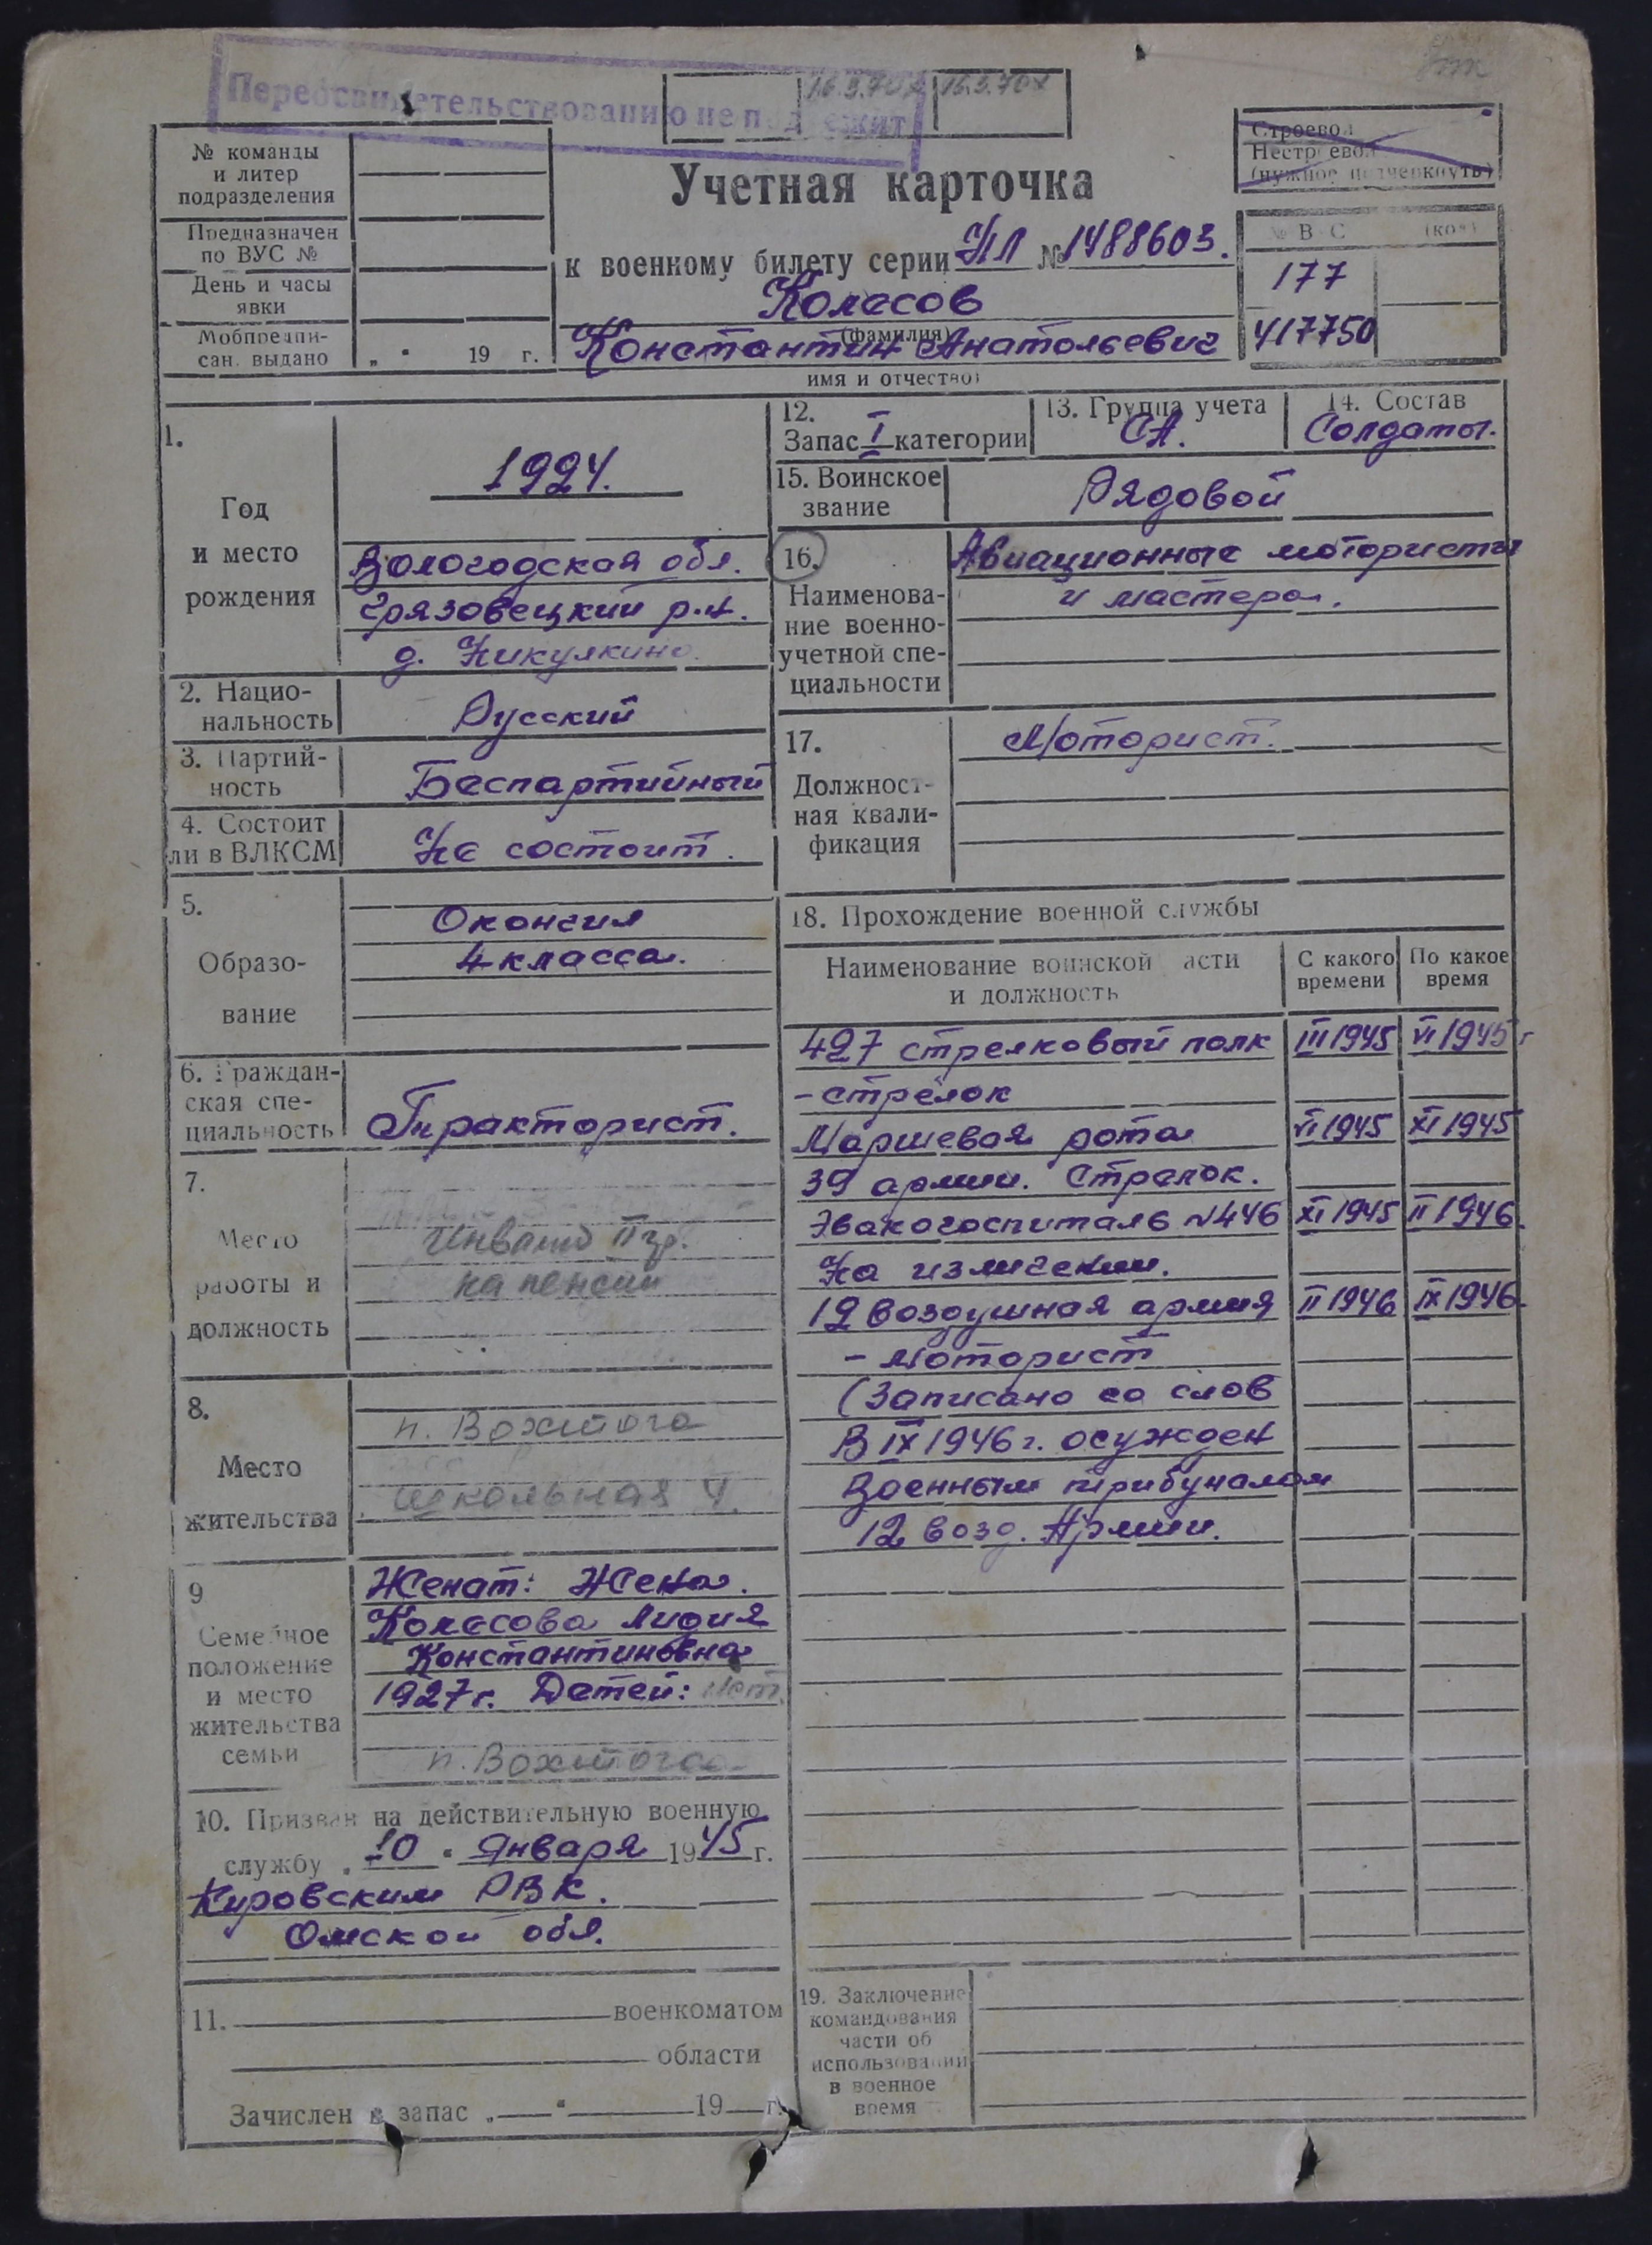 Переосвидетельствованию не подлежит
16.3.70г 16.3.70г
Строевой
Нестроевой
(нужное подчеркнуть)
№ команды
и литер
подразделения
Предназначен
по ВУС №
День и часы
явки
Мобпредпи-
сан. выдано „ “ 19 г.
Учетная карточка
к военкому билету серии НЛ № 1488603.
Колесов
(фамилия)
Константин Анатольевич
имя и отчество)
№ В С (код)
177
417750
1.
Год
и место
рождения
1924.
Вологодская обл.
Грязовецкий р.н.
д. Никулкино.
2. Нацио-
нальность
Русский
3. Партий-
ность
Беспартийный
4. Состоит
ли в ВЛКСМ
Не состоит.
5.
Образо-
вание
Окончил
4 класса.
6. Граждан-
ская спе-
циальность
Тракторист.
7.
Место
работы и
должность
Инвалид II гр.
на пенсии
8.
Место
жительства
п. Вохтога
Школьная 4.
9
Семейное
положение
и место
жительства
семьи
Женат: Жена.
Колесова Лидия
Константиновна
1927г. Детей: нет.
п. Вохтога
10. Призван на действительную военную
службу „ 10 “ Января 1945 г.
Кировским РВК.
Омской обл.
11. военкоматом
области
Зачислен в запас „ “ 19 г.
12.
Запас I категории
13. Группа учета
СА.
14. Состав
Солдаты.
15. Воинское
звание
Рядовой
16.
Наименова-
ние военно-
учетной спе-
циальности
Авиационные мотористы
и мастера.
17.
Должност-
ная квали-
фикация
Моторист.
18. Прохождение военной службы
Наименование воинской части
и должность
С какого
времени
По какое
время
427 стрелковый полк III 1945 VI 1945 г
- стрелок
Маршевая рота VI 1945 XI 1945
39 армии. Стрелок.
Эвакогоспиталь №446 XI 1945 II 1946.
На излечении.
12 воздушная армия II 1946 IX 1946.
- Моторист
(Записано со слов
В IX 1946 г. осужден
Военным трибуналом
12 возд. Армии.
19. Заключение
командования
части об
использовании
в военное
время